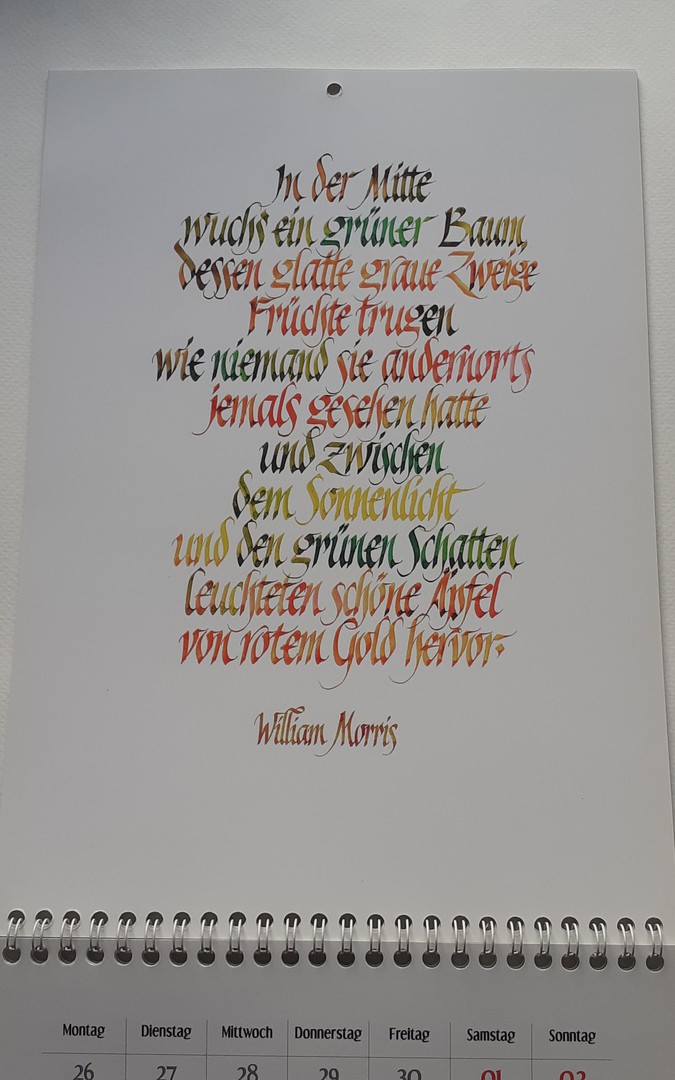 In der Mitte
wuchs ein grüner Baum,
dessen glatte graue Zweige
Früchte trugen
wie niemand sie andernorts
jemals gesehen hatte
und zwischen
dem Sonnenlicht
und den grünen Schatten
leuchteten schöne Äpfel
von rotem Gold hervor.
William Morris
Montag Dienstag Mittwoch Donnerstag Freitag Samstag Sonntag
26 27 28 29 30 01 02